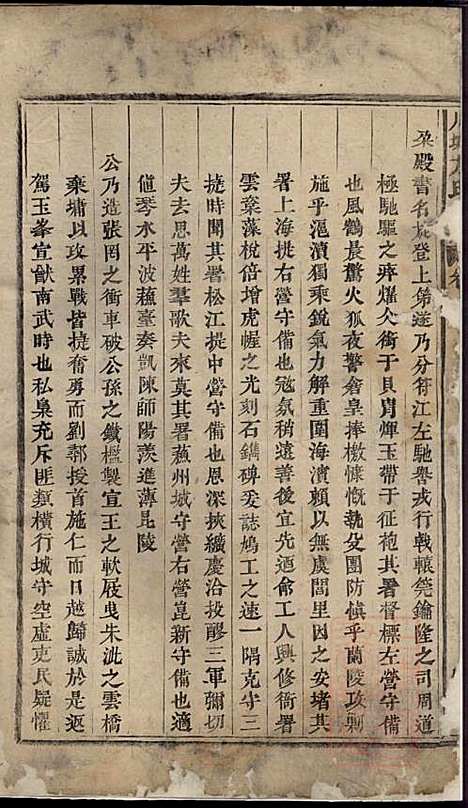 殿書名旋登上第遂乃分符江左馳譽戎行戟轅筦鑰隆之司周道
極馳驅之瘁燿火銜于貝冑輝玉帶于征袍其署督標左營守備
也風鶴晨驚火狐夜警會皇捧檄慷慨執殳團防慎乎蘭陵攻剿
施乎滬瀆獨乘銳氣力解重圍海濱賴以無虞閭里因之安堵其
署上海提右營守備也冦氛稍遠善後宜先迺命工人興修衙署
雲楶藻梲倍增虎幄之光刻石鐫碑爰誌鳩工之速一隅克守三
捷時聞其署松江提中營守備也恩深挾纊慶洽投醪三軍彌切
夫去思萬姓羣歌夫來莫其署蘇州城守營右營崑新守備也適
值琴水平波蘓臺奏凱陳師陽羨進薄毘陵
公乃造張罔之衝車破公孫之鐵檻製宣王之軟屐曳朱泚之雲橋
乘墉以攻累戰皆捷奮勇而劉鄩授首施仁而日越歸誠於是返
駕玉峯宣猷南武時也私梟充斥匪類橫行城守空虛吏民疑懼